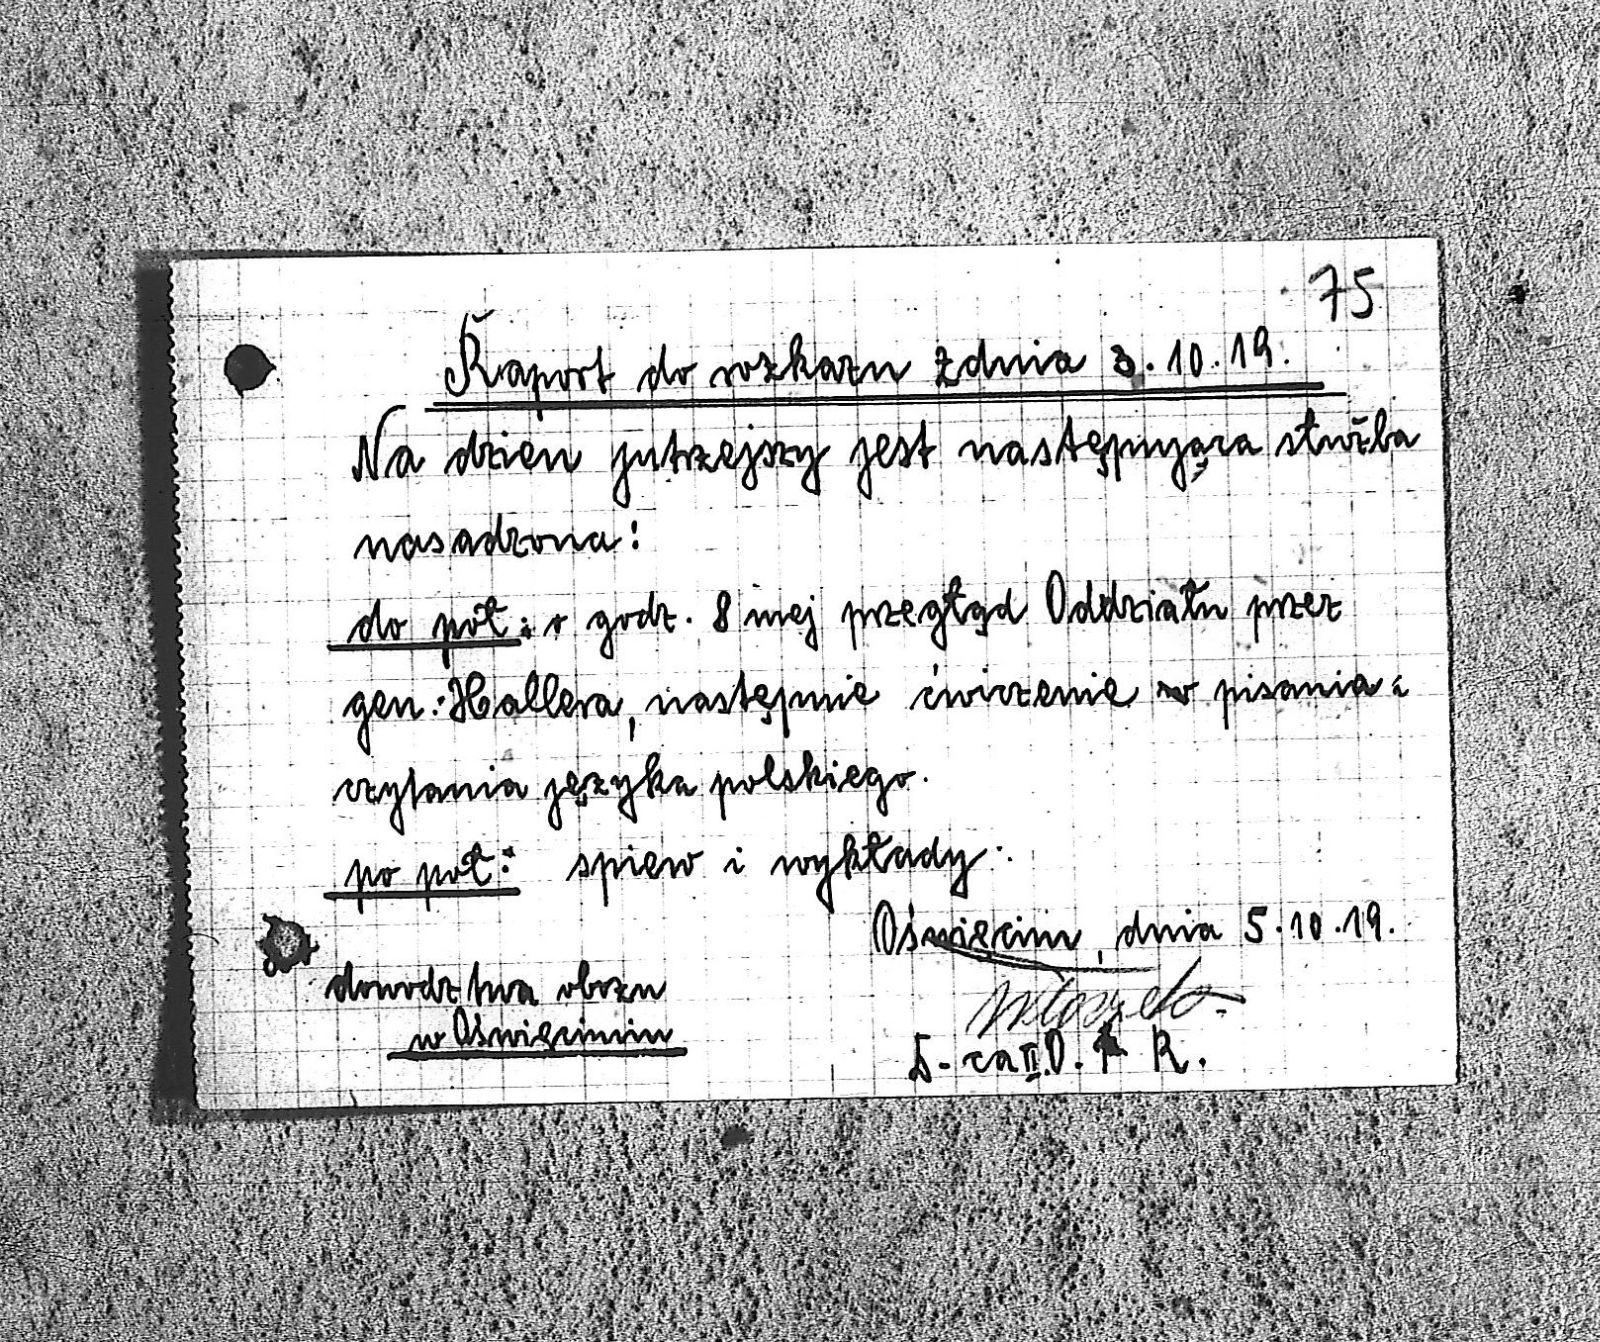 75
Raport do rozkazu z dnia 3.10.19.
Na dzien jutrzejszy jest następująca służba
nasadzona:
do poł: o godz. 8 mej przegłąd Oddziału przez
gen: Hallera, następnie ćwiczenie w pisania i
czytania języka polskiego.
po poł: spiew i wykłady.
Oświęcim, dnia 5.10.19.
dowodztwa obozu
w Oświęcimiu
D-ca II.O. 1 R.